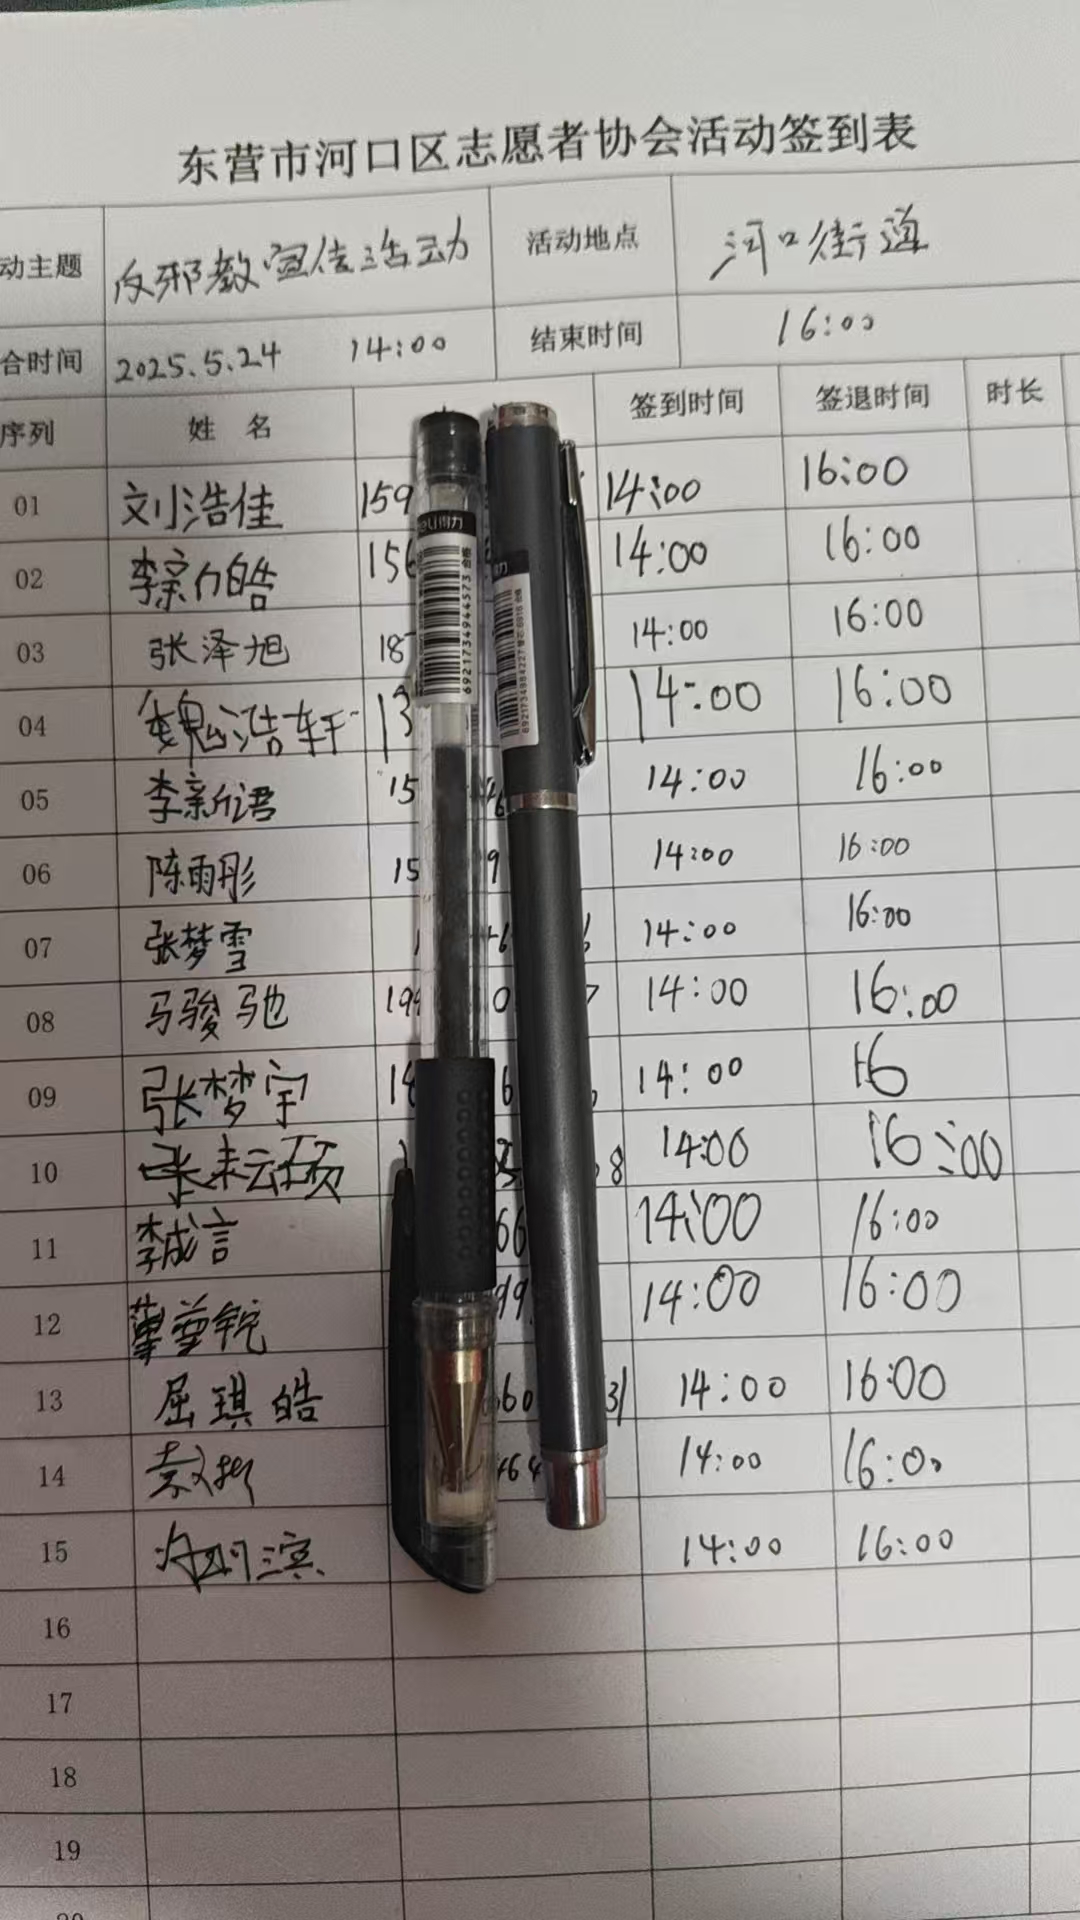 东营市河口区志愿者协会活动签到表
动主题 反邪教宣传活动 活动地点 河口街道
合时间 2025.5.24 14:00 结束时间 16:00
序列 姓 名 签到时间 签退时间 时长
01 刘浩佳 159 14:00 16:00
02 李新皓 156 14:00 16:00
03 张泽旭 187 14:00 16:00
04 魏浩轩 13 14:00 16:00
05 李新君 15 46 14:00 16:00
06 陈雨彤 15 9 14:00 16:00
07 张梦雪 1 46 6 14:00 16:00
08 马骏驰 199 0 7 14:00 16:00
09 张梦宇 6 14:00 16
10 张耘硕 8 14:00 16:00
11 李成言 66 14:00 16:00
12 99 14:00 16:00
13 屈琪皓 660 31 14:00 16:00
14 464 14:00 16:00
15 14:00 16:00
16
17
18
19
6921734944573
6921734984227